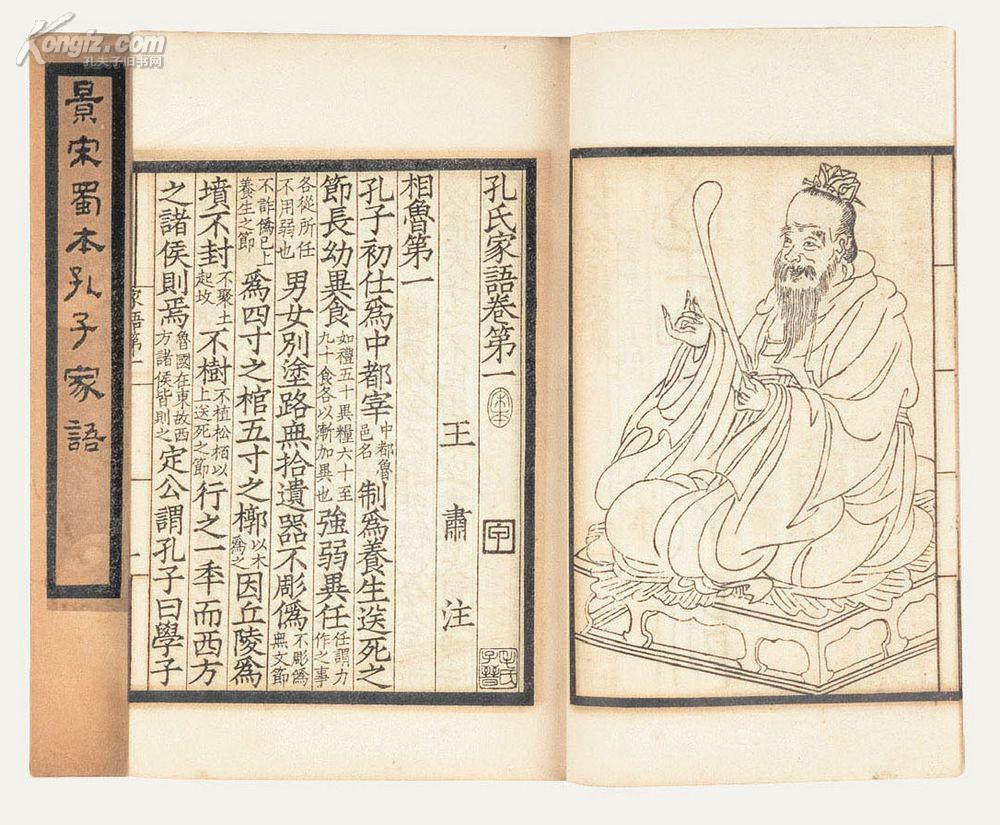 Kongfz.com
孔夫子旧书网
景宋蜀本孔子家語
孔氏家語卷第一
宋本
王肅注
毛氏子晉
相魯第一
孔子初仕爲中都宰中都魯邑名制爲養生送死之
節長幼異食如禮五十異糧六十至九十食各以漸加異也強弱異任任謂力作之事
各從所任不用弱也男女別塗路無拾遺器不彫僞不彫僞無文節
不詐僞已上養生之節爲四寸之棺五寸之槨以木爲之因丘陵爲
墳不封不聚土起坟不樹不植松栢以上送死之節行之一年而西方
之諸侯則焉魯國在東故西方諸侯皆則之定公謂孔子曰學子
家語第一